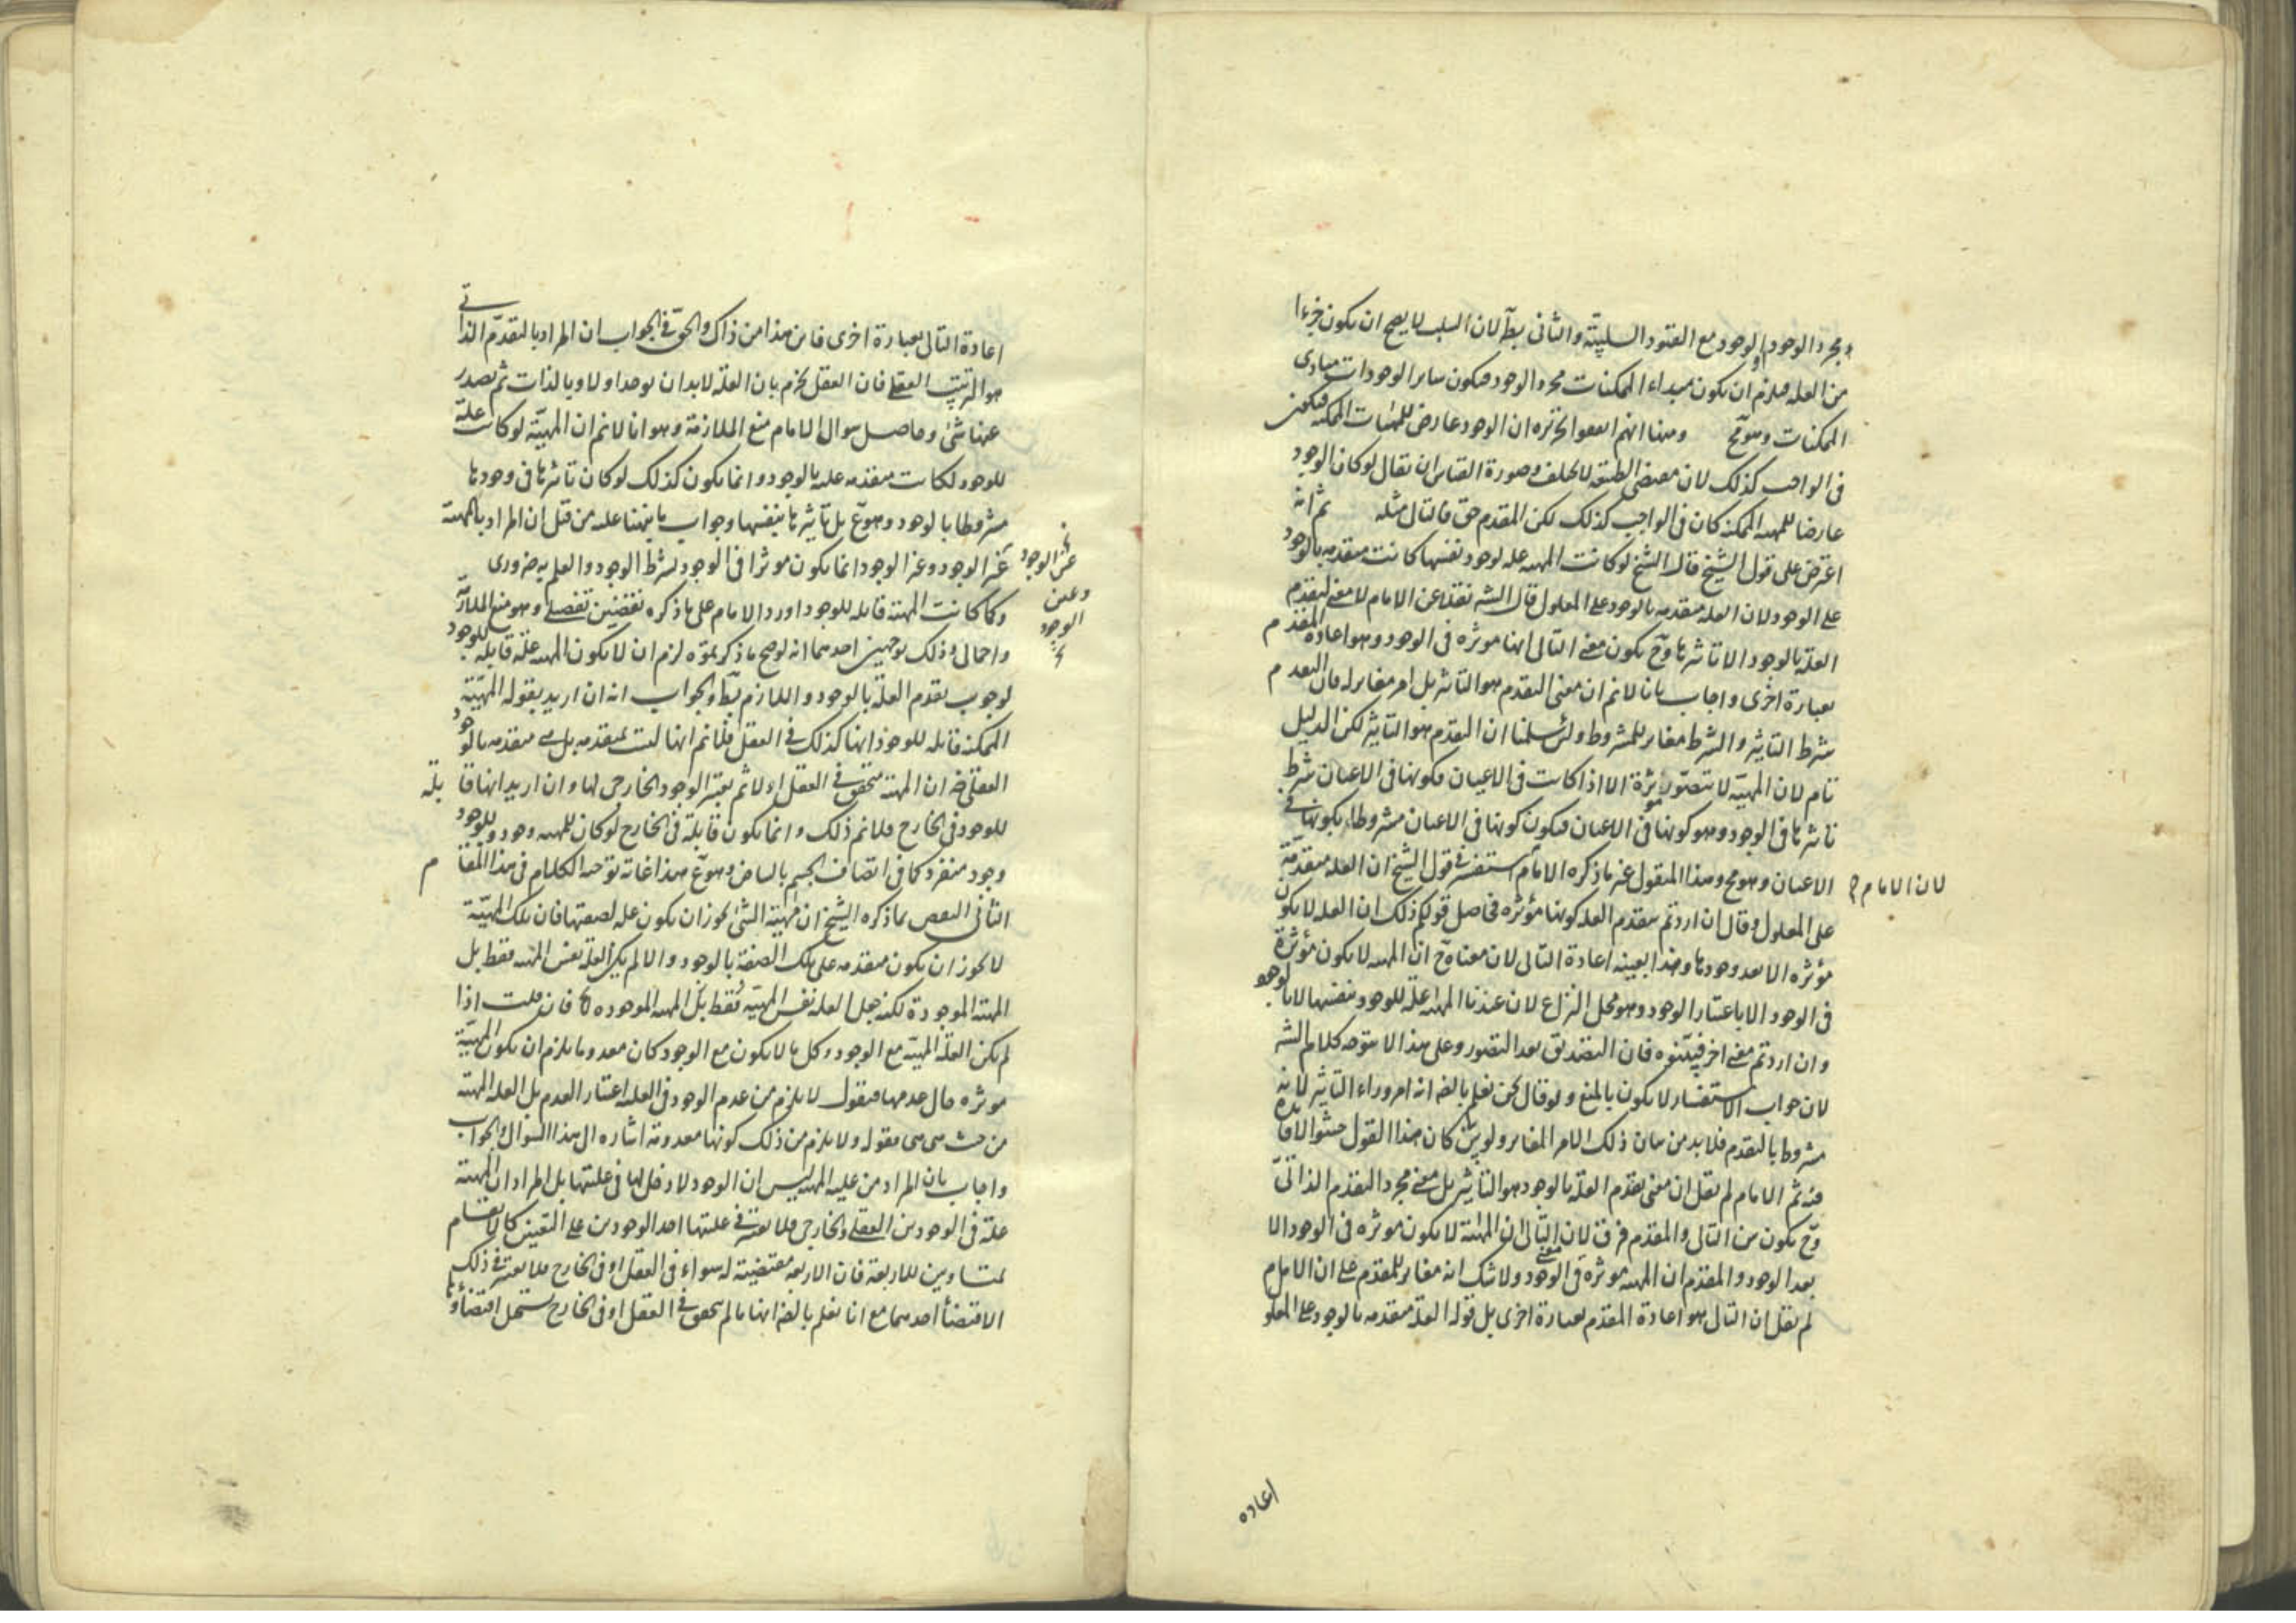 مجرد الوجود او الوجود مع القيود السلبيّة والثانى بطّ لان السلب لا يصح ان يكون جزءا
من العله فيلزم ان يكون مبداء الممكنات مجرد الوجود فيكون ساير الوجودات مبادى
الممكنات وهو مح ومنها انهم اتفقوا ان الوجود عارض للمهيات الممكنة فيكون
فى الواجب كذلك لان مقتضى الطبيعة لا يختلف وصورة القياس ان يقال لوكان الوجود
عارضا للمهيه الممكنه كان فى الواجب كذلك لكن المقدم حق فالتالى مثله ثم انه
اعترض على قول الشيخ قال الشيخ لوكانت المهيه عله لوجود نفسها كانت متقدمه بالوجود
على الوجود لان العله متقدمه بالوجود على المعلول قال الشه نقلا عن الامام لا معنى لتقدم
العله بالوجود الا تاثيرها وح يكون معنى التالى انها موثره فى الوجود وهو اعادة المقدم
بعبارة اخرى واجاب بانا لانم ان معنى التقدم هو التاثير بل امر مغاير له فان التقدم
شرط التاثير والشرط مغاير للمشروط ولئن سلمنا ان التقدم هو التاثير لكن الدليل
تام لان المهيّه لا يتصور موثرة الا اذا كانت فى الاعيان فكونها فى الاعيان شرط
تاثيرها فى الوجود وهو كونها فى الاعيان فيكون كونها فى الاعيان مشروطا بكونها فى
الاعيان وهو مح وهذا المنقول غير ما ذكره الامام استفسر فى قول الشيخ ان العله متقدمة
لان الامام
على المعلول وقال ان اردتم بتقدم العله كونها مؤثره فحاصل قولكم ذلك ان العله لا يكون
مؤثره الا بعد وجودها وهذا بعينه اعادة التالى لان معناه ح ان المهيه لا يكون مؤثرة
فى الوجود الا باعتبار الوجود وهو محل النزاع لان عندنا المهيه علة للوجود بنفسها لا بالوجود
وان اردتم معنى اخر فبيّنوه فان التصديق بعد التصور وعلى هذا لا يتوجه كلام الشه
لان جواب الاستفسار لا يكون بالمنع ولو قال نحن نعلم بالضه انه امر وراء التاثير لانه
مشروط بالتقدم فلا بد من بيان ذلك الامر المغاير ولو بيّن كان هذا القول حشوا لا فائدة
فيه ثم الامام لم يقل ان معنى تقدم العلة بالوجود هو التاثير بل معنى مجرد التقدم الذاتىّ
وح يكون بين التالى والمقدم فرق لان معنى التالى ان المهيّة لا يكون موثره فى الوجود الا
بعد الوجود والمقدم ان المهيه موثره فى الوجود ولا شك انه مغاير للمقدم على ان الامام
لم يقل ان التالى هو اعادة المقدم بعبارة اخرى بل قوله العلة متقدمه بالوجود على المعلو
اعاده
اعادة التالى بعبارة اخرى فاين هذا من ذاك والحقّ فى الجواب ان المراد بالتقدّم الذاتى
هو الترتيب العقلى فان العقل يجزم بان العلّة لا بد ان يوجد اولا وبالذات ثم يصدر
عنها شئ وحاصل سوال الامام منع الملازمة وهو انا لانم ان المهيّة لو كانت علة
للوجود لكانت متقدمه عليه بالوجود وانما يكون كذلك لوكان تاثيرها فى وجودها
مشروطا بالوجود وهو ع بل تاثيرها بنفسها وجوابه ما ينهنا عليه من قبل ان المراد بالمهية
غير الوجود وغير الوجود انما يكون موثرا فى الوجود بشرط الوجود والعلم به ضرورى
غير الوجود
وعين
الوجود
وكما كانت المهية قابله للوجود اورد الامام على ما ذكره نقضين تفصيلى وهو منع الملازمة
واجمالى وذلك بوجهين احدهما انه لو صح ما ذكرتموه لزم ان لا يكون المهيه علة قابلة للوجود
لوجوب تقدم العلّة بالوجود واللازم بطّ والجواب انه ان اريد بقوله المهيّة
الممكنة قابله للوجود انها كذلك فى العقل فلانم انها ليست بمتقدمه بل هى متقدمه بالوجود
العقلى ضه ان المهية تتحقق فى العقل اولا ثم يعتبر الوجود الخارجى لها وان اريد انها قابلة
للوجود فى الخارج فلانم ذلك وانما يكون قابلة فى الخارج لو كان للمهيه وجود وللوجود
وجود منفرد كما فى اتصاف الجسم بالبياض وهو ع هذا غاية توجيه الكلام فى هذا المقام
الثانى النقض بما ذكره الشيخ ان مهيّة الشئ يجوز ان يكون علة لصفتها فان تلك المهيّة
لا يجوز ان يكون متقدمه على تلك الصفة بالوجود والا لم يكن العلة نفس المهيّه فقط بل
المهية الموجودة لكنه جعل العله نفس المهيّه فقط بل المهيه الموجوده فان قلت اذا
لم يكن العلة المهيّة مع الوجود وكل ما لا يكون مع الوجود كان معدوما يلزم ان يكون المهيّة
موثره حال عدمها فنقول لا يلزم من عدم الوجود فى العله اعتبار العدم بل العله المهية
من حيث هى هى مقوله ولا يلزم من ذلك كونها معدومة اشاره الى هذا السوال والجواب
واجاب بان المراد من علية المهيه ليس ان الوجود لا دخل لها فى علتها بل المراد ان المهية
علة فى الوجودين العقلى والخارجى فلا يعتبر فى علتها احد الوجودين على التعيين كالانقسام
بمتساويين للاربعة فان الاربعه مقتضية له سواء فى العقل او فى الخارج فلا يعتبر فى ذلك
الاقتضاء احدهما مع انا نعلم بالضه انها ما لم يتحقق فى العقل او فى الخارج يستحيل اقتضاؤها